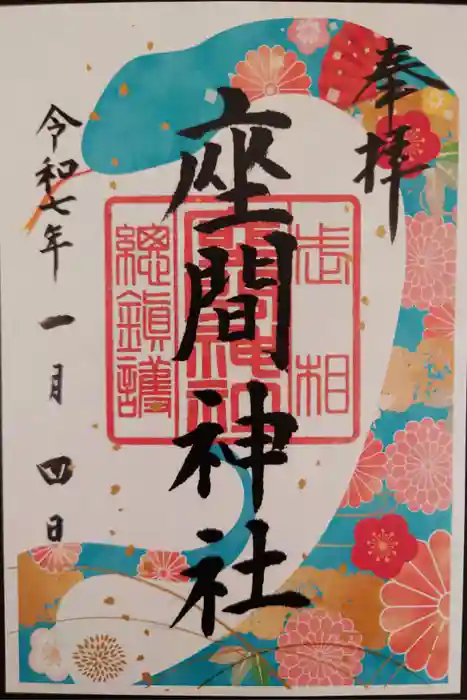 奉拝
座間神社
志相
座間神社
總鎮護
令和七年 一月 四日